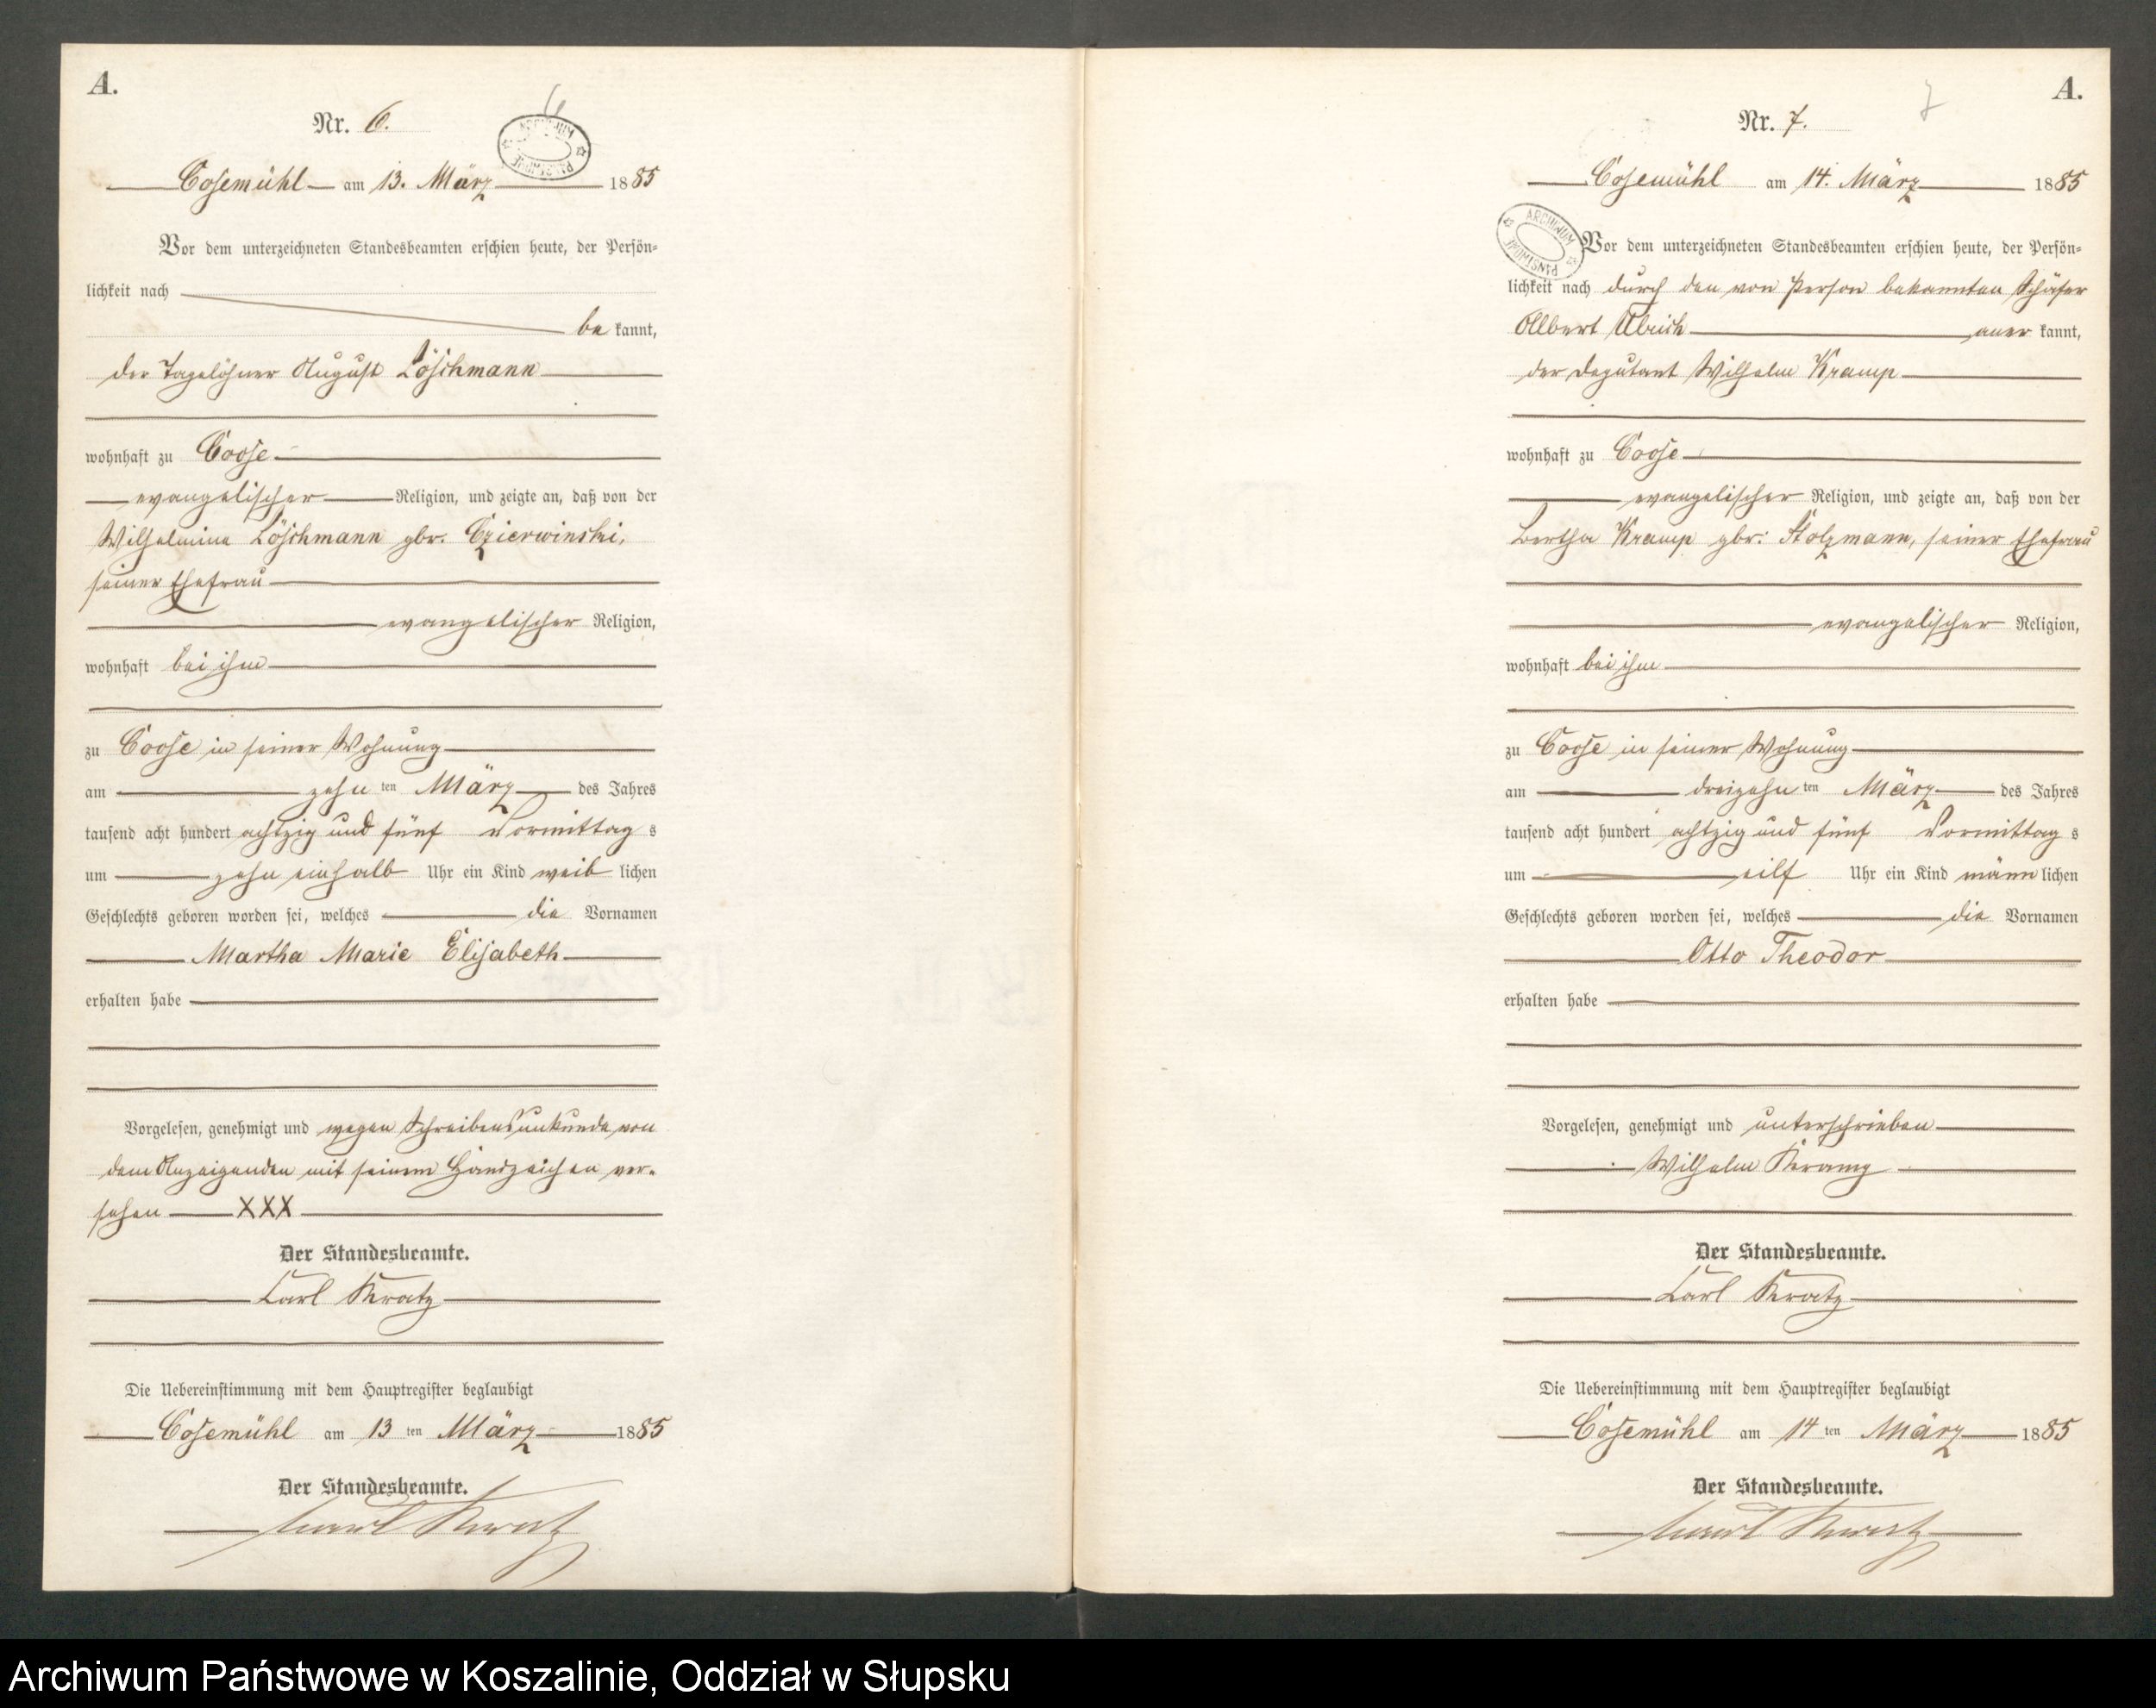 A.
Nr. 6.
6
ARCHIWUM PAŃSTWOWE
Cosemühl am 13. März 1885
Vor dem unterzeichneten Standesbeamten erschien heute, der Persön=
lichkeit nach
be kannt,
der Tagelöhner August Löschmann
wohnhaft zu Coose
evangelischer Religion, und zeigte an, daß von der
Wilhelmine Löschmann gbr. Czierwinski,
seiner Ehefrau
evangelischer Religion,
wohnhaft bei ihm
zu Coose in seiner Wohnung
am zehn ten März des Jahres
tausend acht hundert achtzig und fünf Vormittag s
um zehn einhalb Uhr ein Kind weib lichen
Geschlechts geboren worden sei, welches die Vornamen
Martha Marie Elisabeth
erhalten habe
Vorgelesen, genehmigt und wegen Schreibensunkunde von
dem Anzeigenden mit seinem Handzeichen ver-
sehen XXX
Der Standesbeamte.
Carl Kratz
Die Uebereinstimmung mit dem Hauptregister beglaubigt
Cosemühl am 13 ten März 1885
Der Standesbeamte.
Carl Kratz
A.
7
Nr. 7.
Cosemühl am 14. März 1885
ARCHIWUM PAŃSTWOWE
Vor dem unterzeichneten Standesbeamten erschien heute, der Persön=
lichkeit nach durch den von Person bekannten Schäfer
Albert Ulrich aner kannt,
der Deputant Wilhelm Kramp
wohnhaft zu Coose
evangelischer Religion, und zeigte an, daß von der
Bertha Kramp gbr: Stolzmann, seiner Ehefrau
evangelischer Religion,
wohnhaft bei ihm
zu Coose in seiner Wohnung
am dreizehn ten März des Jahres
tausend acht hundert achtzig und fünf Vormittag s
um eilf Uhr ein Kind männ lichen
Geschlechts geboren worden sei, welches die Vornamen
Otto Theodor
erhalten habe
Vorgelesen, genehmigt und unterschrieben
Wilhelm Kramp
Der Standesbeamte.
Carl Kratz
Die Uebereinstimmung mit dem Hauptregister beglaubigt
Cosemühl am 14 ten März 1885
Der Standesbeamte.
Carl Kratz
Archiwum Państwowe w Koszalinie, Oddział w Słupsku